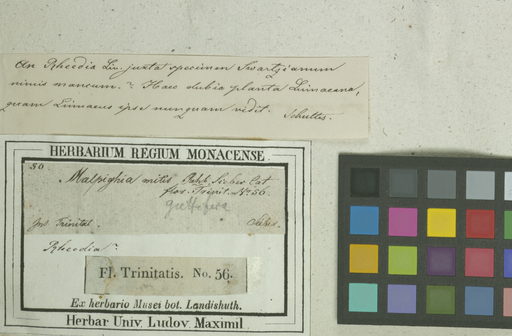 An Rheedia Lin. juxta specimen Swartzianum
nimis mancum.? Haec dubia planta Linnaeana,
quam Linnaeus ipse nunquam vidit. Schultes.
HERBARIUM REGIUM MONACENSE
56
Malpighia mitis Sieber Cat
flor. Trinit. No. 56.
guttifera
Ins Trinitat. Sieber
Rheedia?
Fl. Trinitatis. No. 56.
Ex herbario Musei bot. Landishuth.
Herbar Univ. Ludov. Maximil.